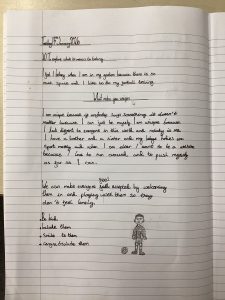 Tuesday 13th January 2026
LO: To explore what it means to belong.
I feel I belong when I am in my garden because there is so
much space and I like to do my football training.
What makes you unique?
I am unique because if somebody says something it doesn't
matter because I can just be myself. I am unique because
I look different to everyone in this world and nobody is me.
I have a brother and a sister and my family makes me
sports mad when I am older I want to be a
because I love to run around and to push myself
as far as I can.
good
We can make everyone feel accepted by welcoming
them in and playing with them so they
don't feel lonely.
Be kind
Include them
Smile to them
Congratulate them